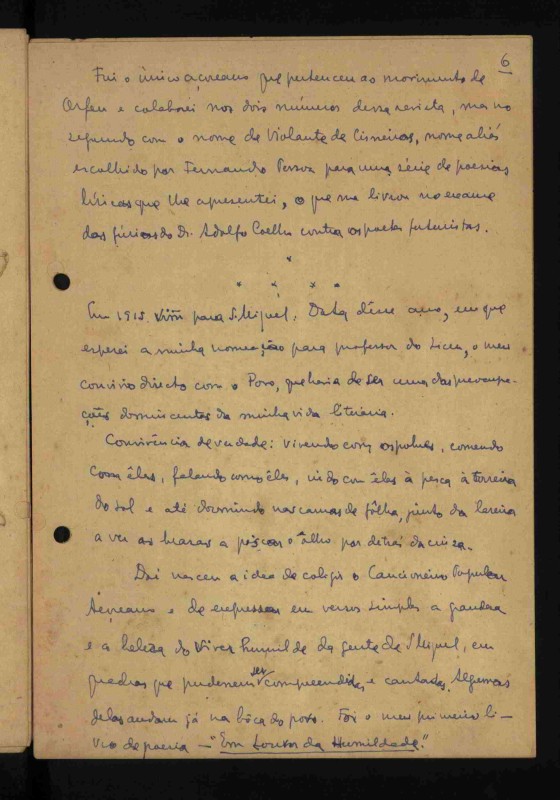 6
Fui o único açoreano que pertenceu ao movimento de
Orfeu e colaborei nos dois números dessa revista, mas no
segundo com o nome de Violante de Cisneiros, nome aliás
escolhido por Fernando Pessoa para uma série de poesias
líricas que lhe apresentei, o que me livrou no exame
das fúrias do Dr. Adolfo Coelho contra os poetas futuristas.
*
* * * *
Em 1915 vim para S. Miguel. Data dêsse ano, em que
esperei a minha nomeação para professor do Liceu, o meu
convívio directo com o Povo, que havia de ser uma das preocupa-
ções dominantes da minha vida literária.
Convivência de verdade: vivendo com os pobres, comendo
com êles, falando como êles, indo com êles à pesca à torreira
do sol e até dormindo nas camas de fôlha, junto da lareira
a ver as brasas a piscar o ôlho por detrás da cinza.
Daí nasceu a idea de coligir o Cancioneiro Popular
Açoreano e de expressar em versos simples a grandeza
e a beleza do viver humilde da gente de S. Miguel, em
quadras que pudessem ser compreendidas e cantadas. Algumas
delas andam já na bôca do povo. Foi o meu primeiro li-
vro de poesia — "Em Louvor da Humildade".